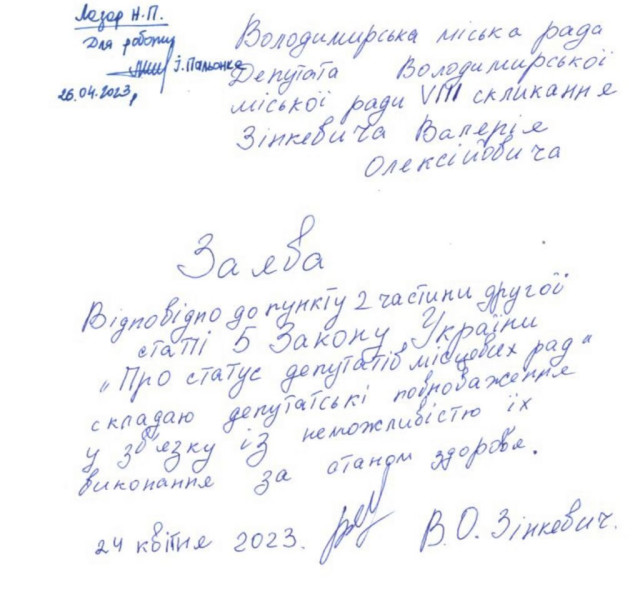 Лазар Н.П.
Для роботи
І. Пальонка
26.04.2023р
Володимирська міська рада
Депутата Володимирської
міської ради VIII скликання
Зінкевича Валерія
Олексійовича
Заява
Відповідно до пункту 2 частини другої
статті 5 Закону України
„Про статус депутатів місцевих рад“
складаю депутатські повноваження
у зв'язку із неможливістю їх
виконання за станом здоровя.
24 квітня 2023. В.О. Зінкевич.